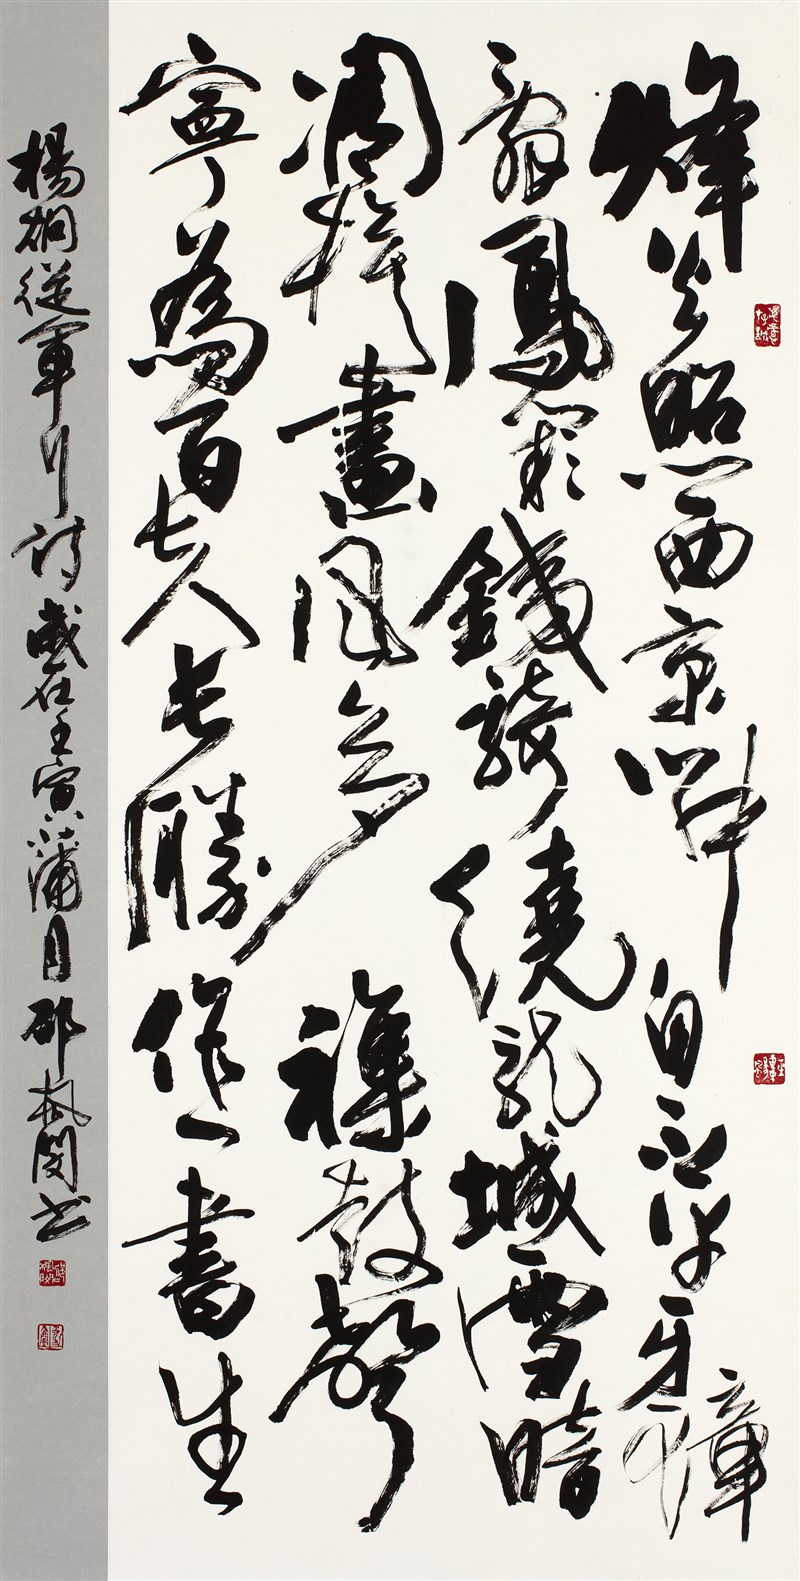 烽火照西京心中自不平牙璋
辭鳳闕鐵騎繞龍城雪暗
凋旗畫風多雜鼓聲
寧為百夫長勝作一書生
楊炯從軍行詩歲在壬寅蒲月邵閔书